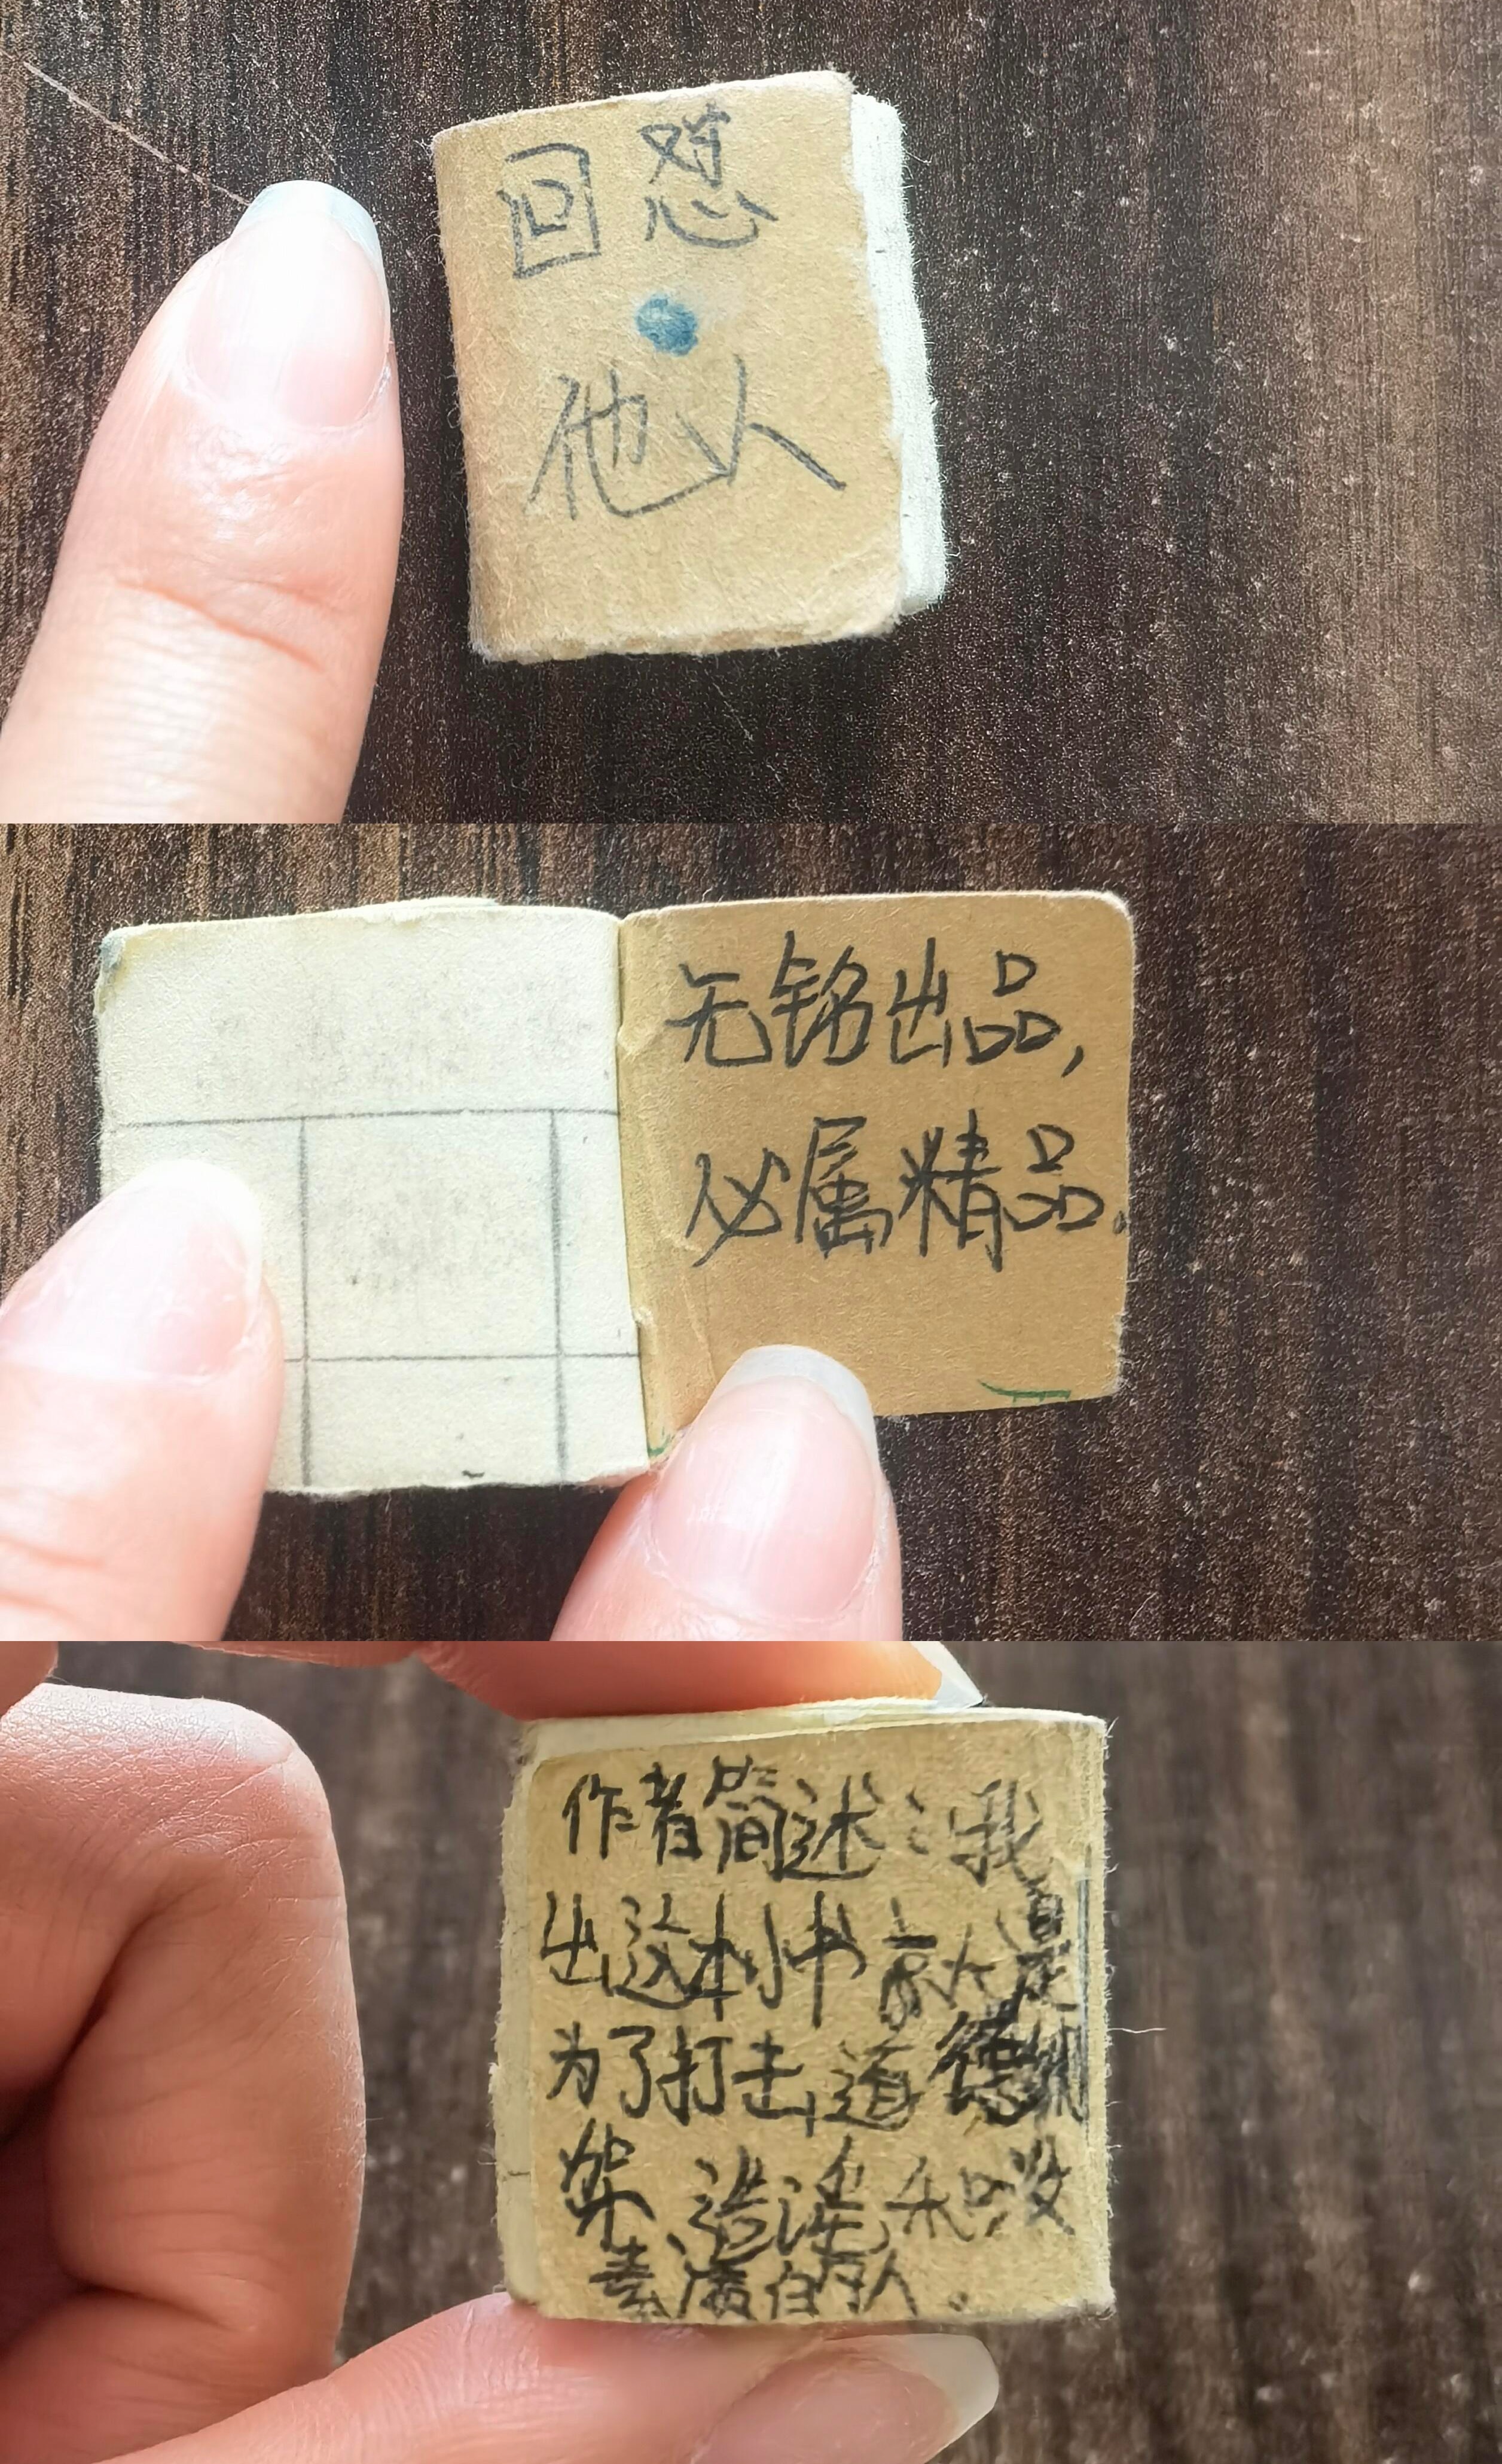 回怼
他人
无铭出品,
必属精品。
作者简述：我
出这本小书就是
为了打击道德绑
架、造谣和没
素质的人.